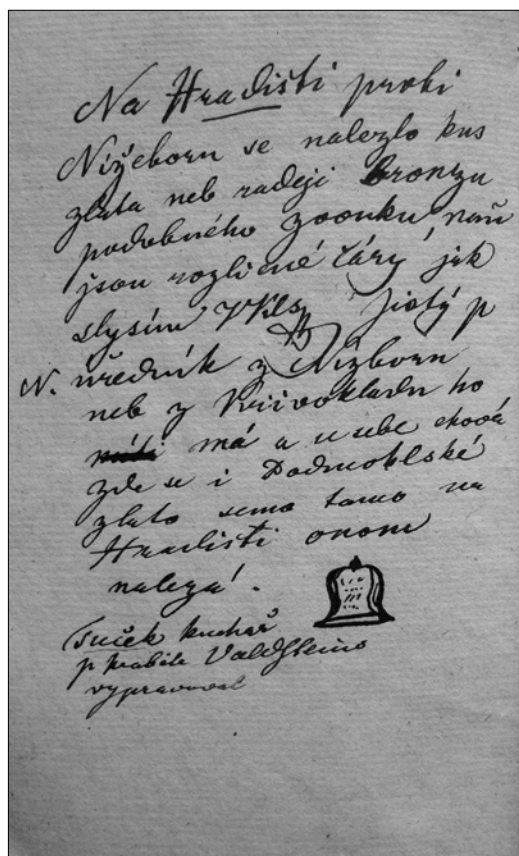 Na Hradišti proti
Nižeboru se nalezlo kus
zlata neb raději bronzu
podobného zvonku, nań
jsou rozličné čáry jak
slysím jistý p
N. úředník z Nižboru
neb z Křivokladu ho
má a u sebe chová
zde se i Podmoklské
zlato semo tamo na
Hradišti onom
nalezá.
kuchař
p hraběte Valdsteina
vypravoval